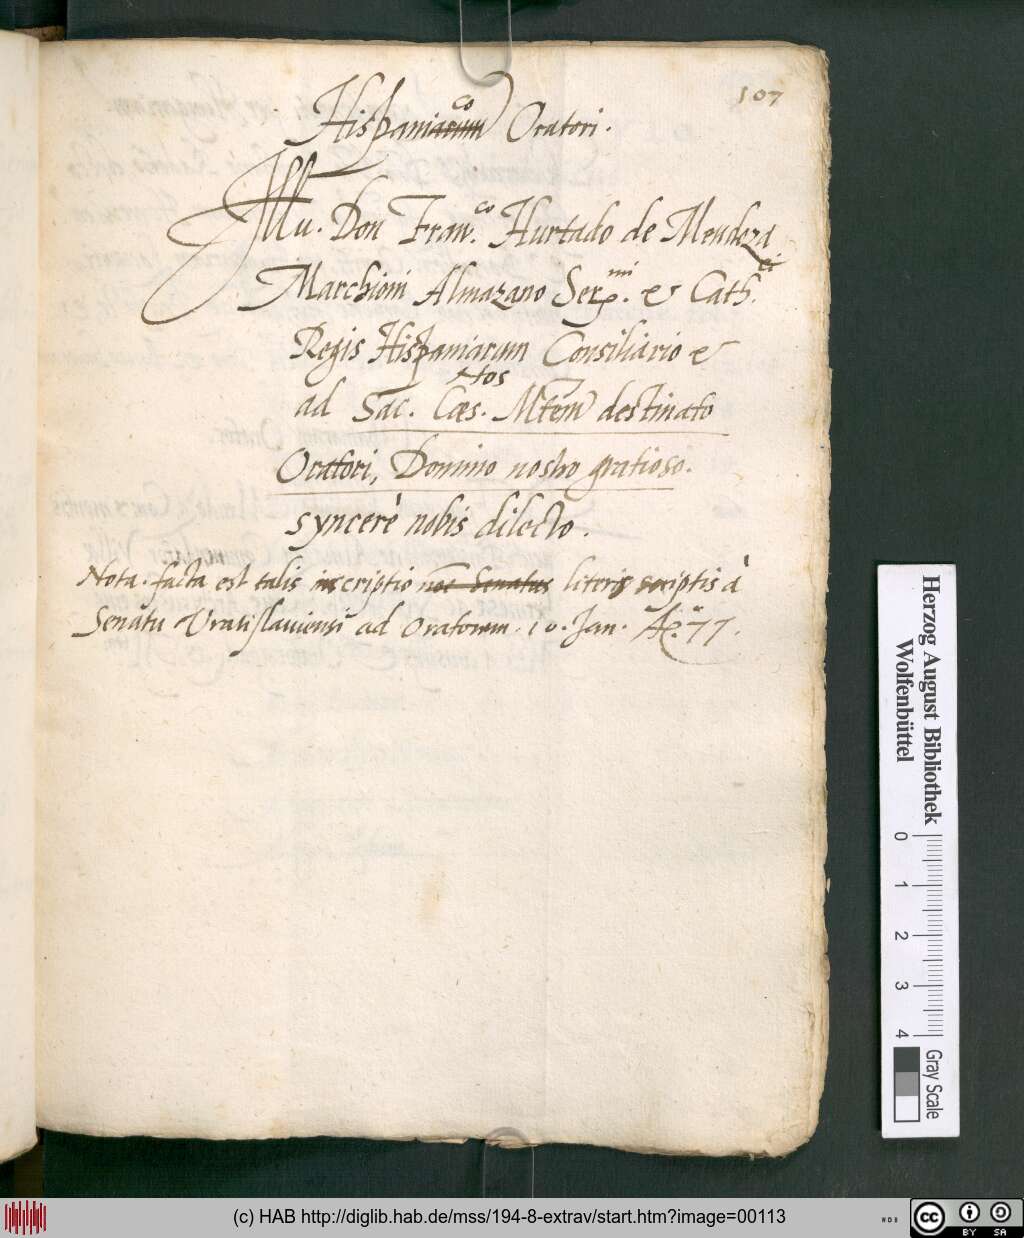 107
Hispaniarum^co Oratori.
Illu. Don Fran.^co Hurtado de Mendoza
Marchioni Almazano Ser.^mi & Cath.^ci
Regis Hispaniarum Consiliario &
ad Sac. Cæs. Mtem destinato
Oratori, Domino nostro gratioso.
syncerè nobis dilecto.
Nota. facta est talis inscriptio noe Senatus literis scriptis à
Senatu Vratislauiensi ad Oratorem. 10. Jan. Aº. 77.
Herzog August Bibliothek
Wolfenbüttel
0 1 2 3 4
Gray Scale
(c) HAB http://diglib.hab.de/mss/194-8-extrav/start.htm?image=00113
WDB
cc BY SA